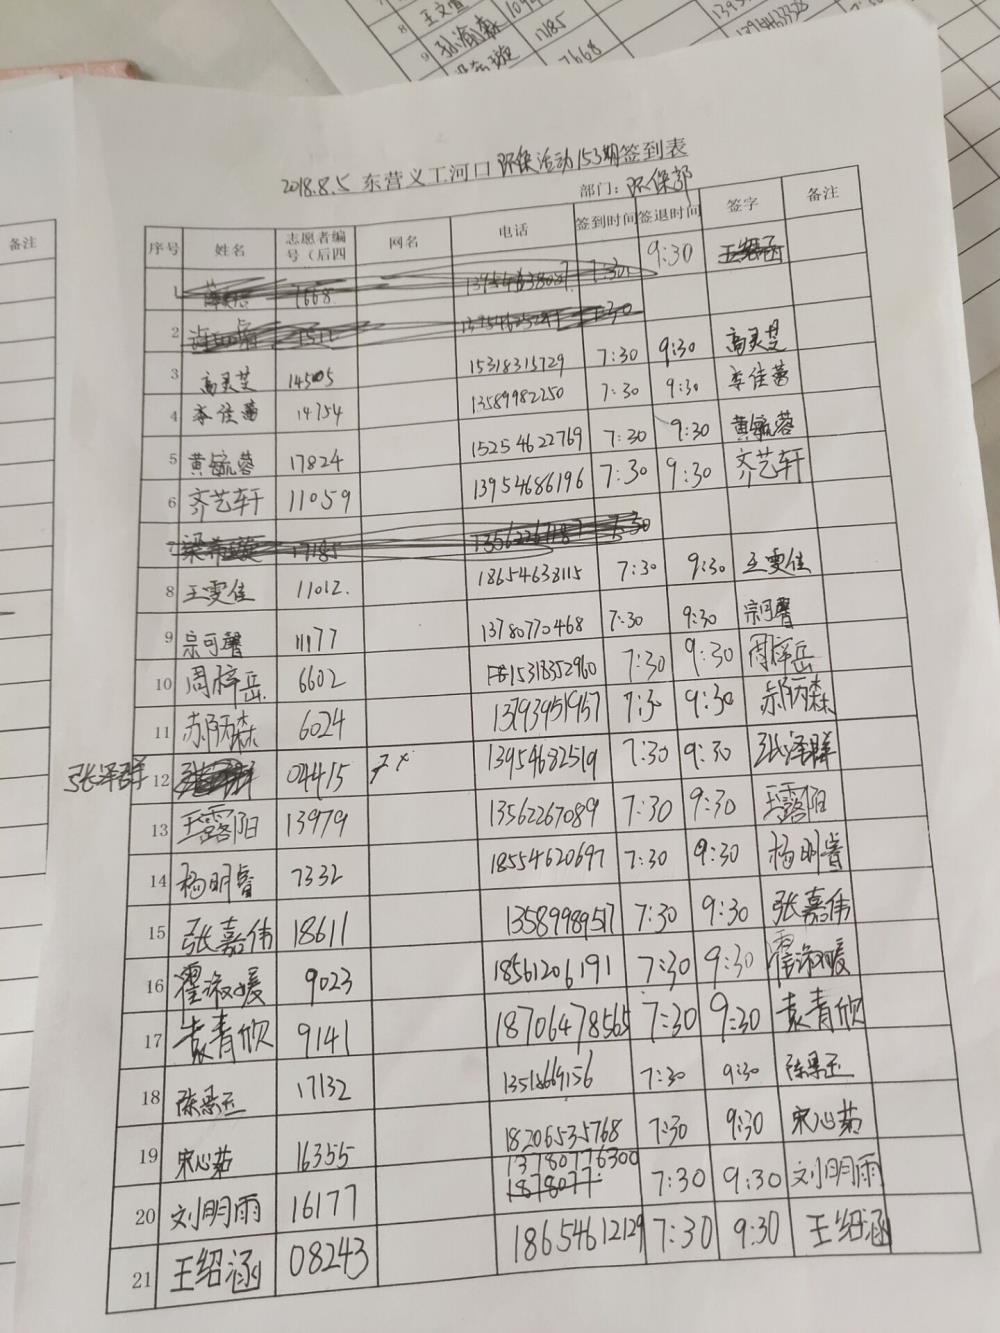 8 王文萱
9 孙渝森 17185
7668
备注
2018.8.5 东营义工河口 环保活动153期签到表
部门：环保部
序号 姓名 志愿者编号（后四 网名 电话 签到时间 签退时间 签字 备注
1 1668 7:30 9:30 王绍涵
2 1512 7:30
3 高灵芝 14505 15318315729 7:30 9:30 高灵芝
4 李佳蕾 14754 13589982250 7:30 9:30 李佳蕾
5 黄毓蓉 17824 15254622769 7:30 9:30 黄毓蓉
6 齐艺轩 11059 13954686196 7:30 9:30 齐艺轩
7 17185 7:30
8 王雯佳 11012. 18654638115 7:30 9:30 王雯佳
9 宗可馨 11177 13780770468 7:30 9:30 宗可馨
10 周梓岳 6602 15318352960 7:30 9:30 周梓岳
11 苏炳森 6024 13793951957 7:30 9:30 苏炳森
张泽群 12 04415 13954682519 7:30 9:30 张泽群
13 王露阳 13979 13562267089 7:30 9:30 王露阳
14 杨明睿 7332 18554620697 7:30 9:30 杨明睿
15 张嘉伟 18611 13589989517 7:30 9:30 张嘉伟
16 霍淑媛 9023 18561206191 7:30 9:30 霍淑媛
17 袁青欣 9141 18706478565 7:30 9:30 袁青欣
18 17132 7:30 9:30
19 宋心茹 16355 18206535768 7:30 9:30 宋心茹
20 刘明雨 16177 13780776300 1878077 7:30 9:30 刘明雨
21 王绍涵 08243 18654612129 7:30 9:30 王绍涵